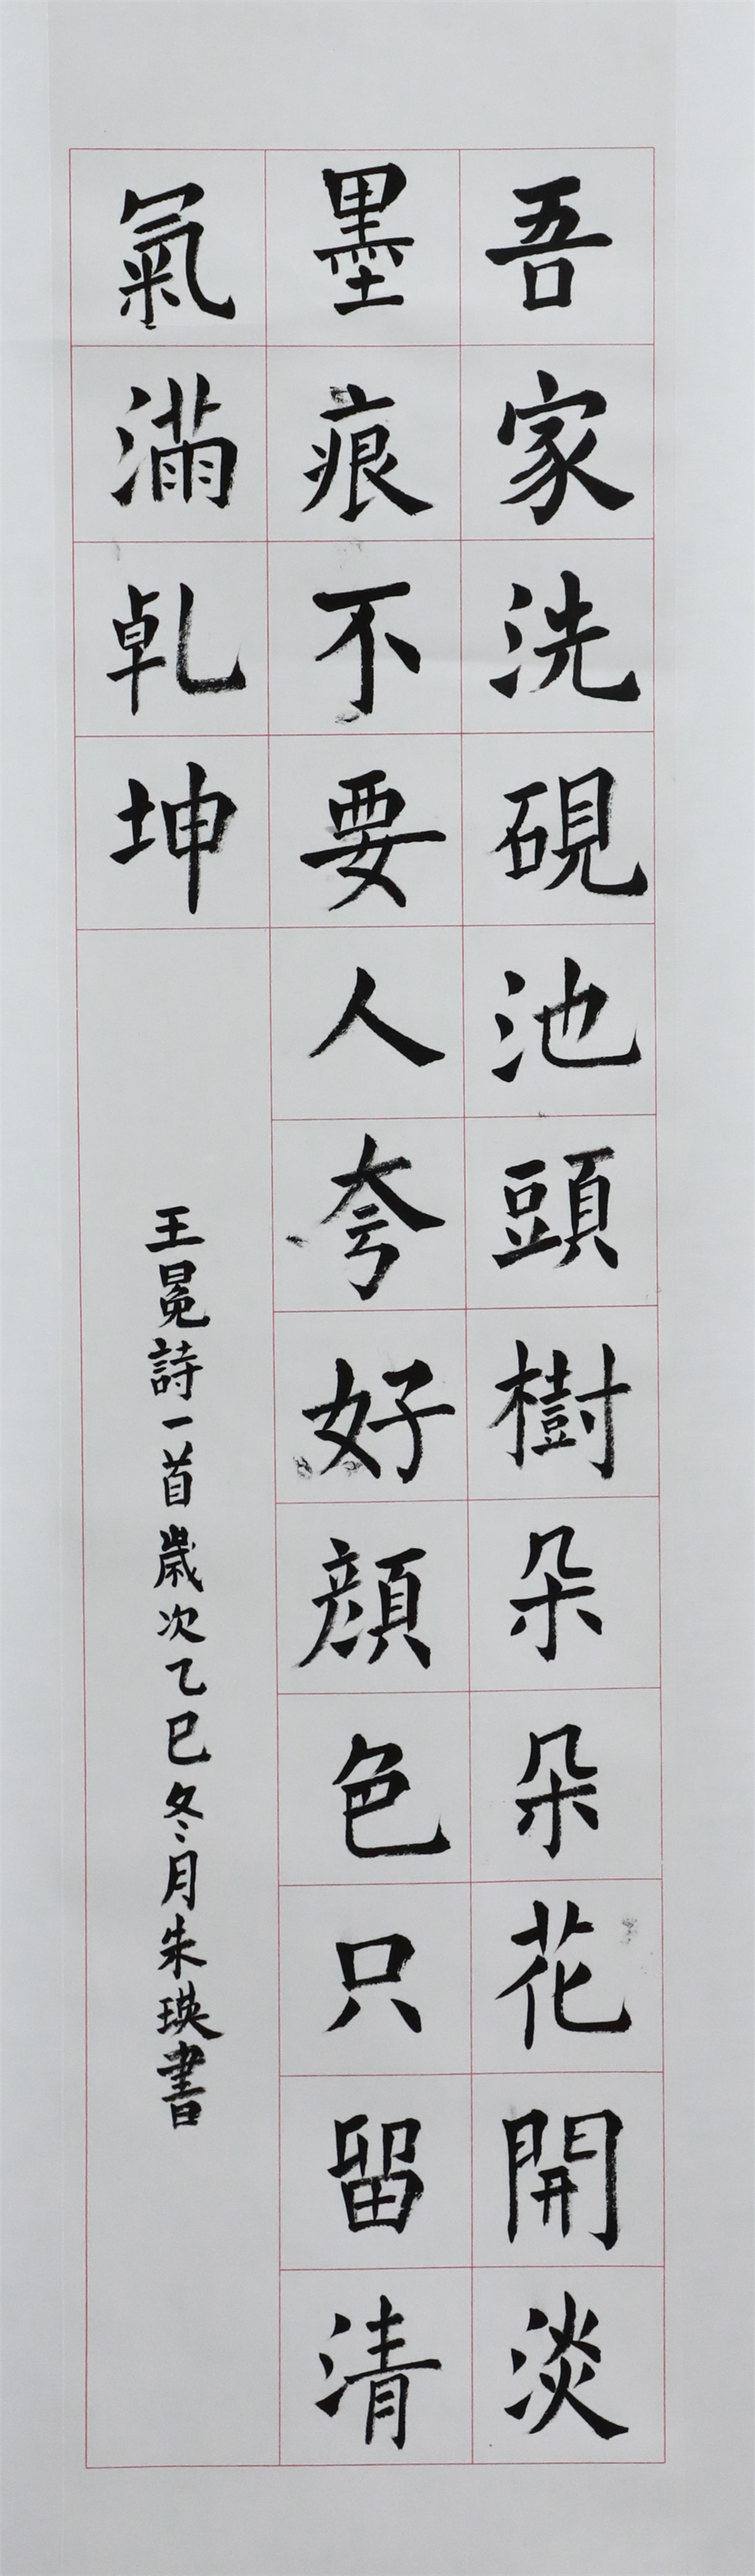 吾家洗硯池頭樹朵朵花開淡
墨痕不要人夸好顏色只留清
氣滿乾坤
王冕詩一首歲次乙巳冬月朱瑛書